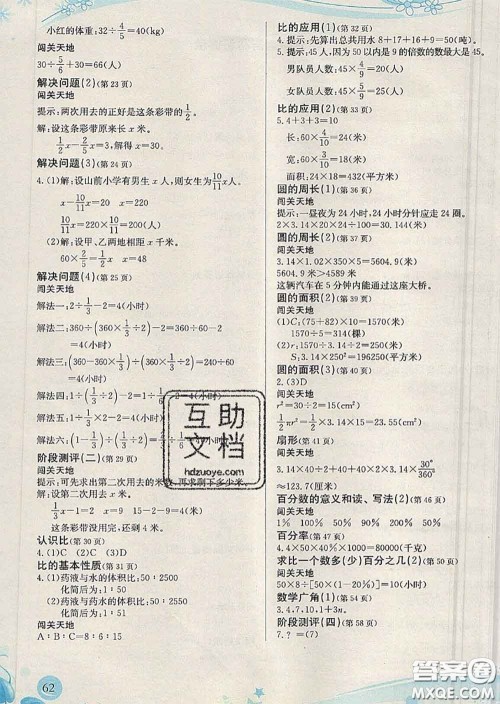 小红的体重:32÷4/5=40(kg)
闯关天地
30÷5/6+30=66(人)
解决问题(2)(第23页)
闯关天地
提示:两次用去的正好是这条彩带的1/2。
解:设这条彩带原来长x米。
1/2x-2/5x=3,解得x=30。
解决问题(3)(第24页)
4.(1)解:设山前小学有男生x人,则女生为10/11x人。
x-10/11x=20 x=220
10/11x=220×10/11=200(人)
(2)解:设甲、乙两地相距x千米。
60×2/5=1/2x x=48
解决问题(4)(第25页)
闯关天地
解法一:2÷1/3-2=4(小时)
解法二:360÷(360×1/3÷2)-2=360÷60-2
=4(小时)
解法三:(360-360×1/3)÷(360×1/3÷2)=240÷60
=4(小时)
解法四:1÷(1/3÷2)-2=1÷1/6-2=4(小时)
解法五:(1-1/3)÷(1/3÷2)=2/3÷1/6=4(小时)
阶段测评(二)(第29页)
闯关天地
提示:可先求出第二次用去的米数,再求剩下多少米。
解:设第二次用去x米。
x-1/3x=10 x=15 28-15-9=4(米)
这条彩带没用完,还剩4米。
认识比(第30页)
4.(1)C (2)C (3)D
比的基本性质(第31页)
4.(1)药液与水的体积比:50:2500
化简后为:1:50
(2)药液与药水的体积比:50:2550
化简后为:1:51
闯关天地
A:B:C=8:6:15
62
比的应用(1)(第32页)
4.提示:先算出总共用水8+17+16+9=50(吨)
5.提示:40~50人以内是9的倍数的数最大是45。
男队员人数:45×4/9=20(人)
女队员人数:45×5/9=25(人)
比的应用(2)(第33页)
5.4+3+3=10
长:60×4/10=24(米)
宽:60×3/10=18(米)
面积:24×18=432(平方米)
圆的周长(1)(第36页)
闯关天地
提示:一昼夜为24小时,24小时分针应走24圈。
2×3.14×20×24=3014.4(厘米)
圆的周长(2)(第37页)
闯关天地
3.3.14×1.02×350×5=5604.9(米)
5604.9米>4589米
这辆汽车在5分钟内能通过这座大桥。
圆的面积(2)(第39页)
闯关天地
5.(1)C:(75+82)×10=1570(米)
1570÷5=314(棵)
(2)r:1570÷3.14÷2=250(米)
S:3.14×250²=196250(平方米)
圆的面积(3)(第40页)
2.(3)D
闯关天地
r²=30÷2=15(cm²)
扇形(第41页)
闯关天地
3.3.14×40÷2+3.14×40×2×30°/360°
≈123.7(厘米)
百分数的意义和读、写法(2)(第46页)
1% 100% 50% 200% 90%
百分率(第47页)
4.4×50%×40×1000=80000(千克)
求比一个数多(少)百分之几(2)(第50页)
闯关天地
50×8÷[50×(1-20%)]=10(天)
数学广角(1)(第54页)
3.4,7,10,1+3n。
阶段测评(四)(第58页)
7.? =(7)
互助文档
hdzuoye.com
答案圈
MXQE.COM